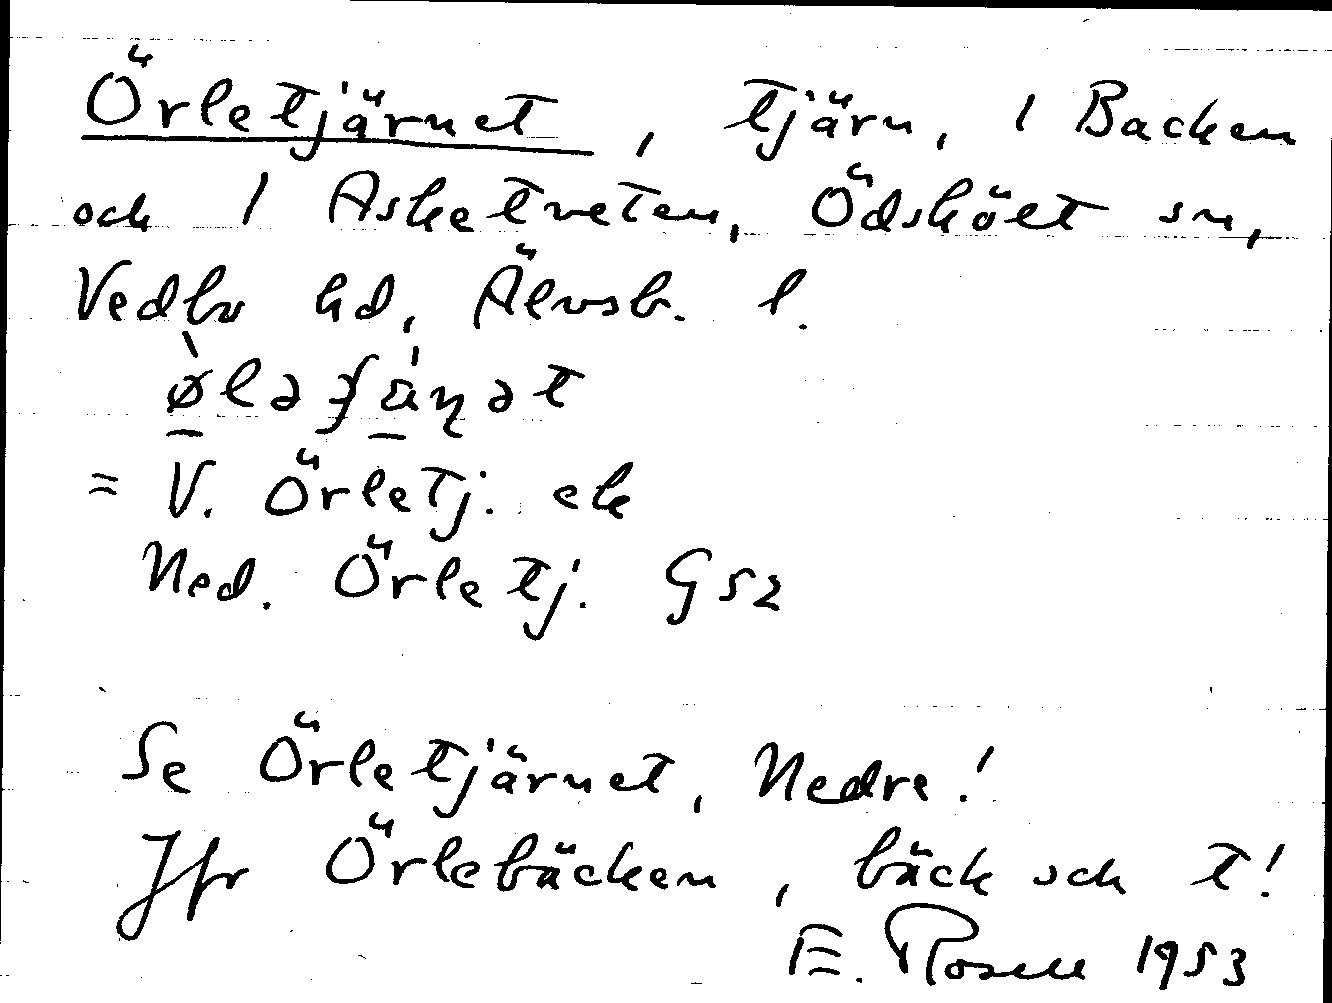 Örletjärnet, tjärn, 1 Backen
och 1 Asketveten, Ödsköět sn,
Vedbo hd, Älvsb. l.
= V. Örletj. ek
Ned. Örletj. G52
Se Örletjärnet, Nedre!
Jfr Örlebäcken, bäck och t!
E. Rosell 1953